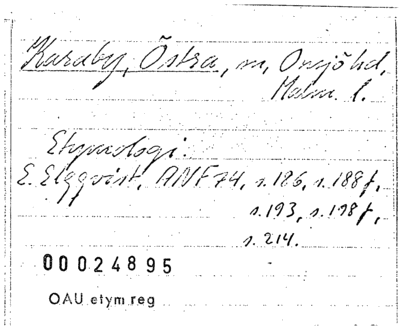 Karaby, Östra, sn, Onsjö hd,
Malm. l.
Etymologi.
E. Elgqvist, ANF 74, s. 186, s. 188 f,
s. 193, s. 198 f,
s. 214.
00024895
OAU etym reg